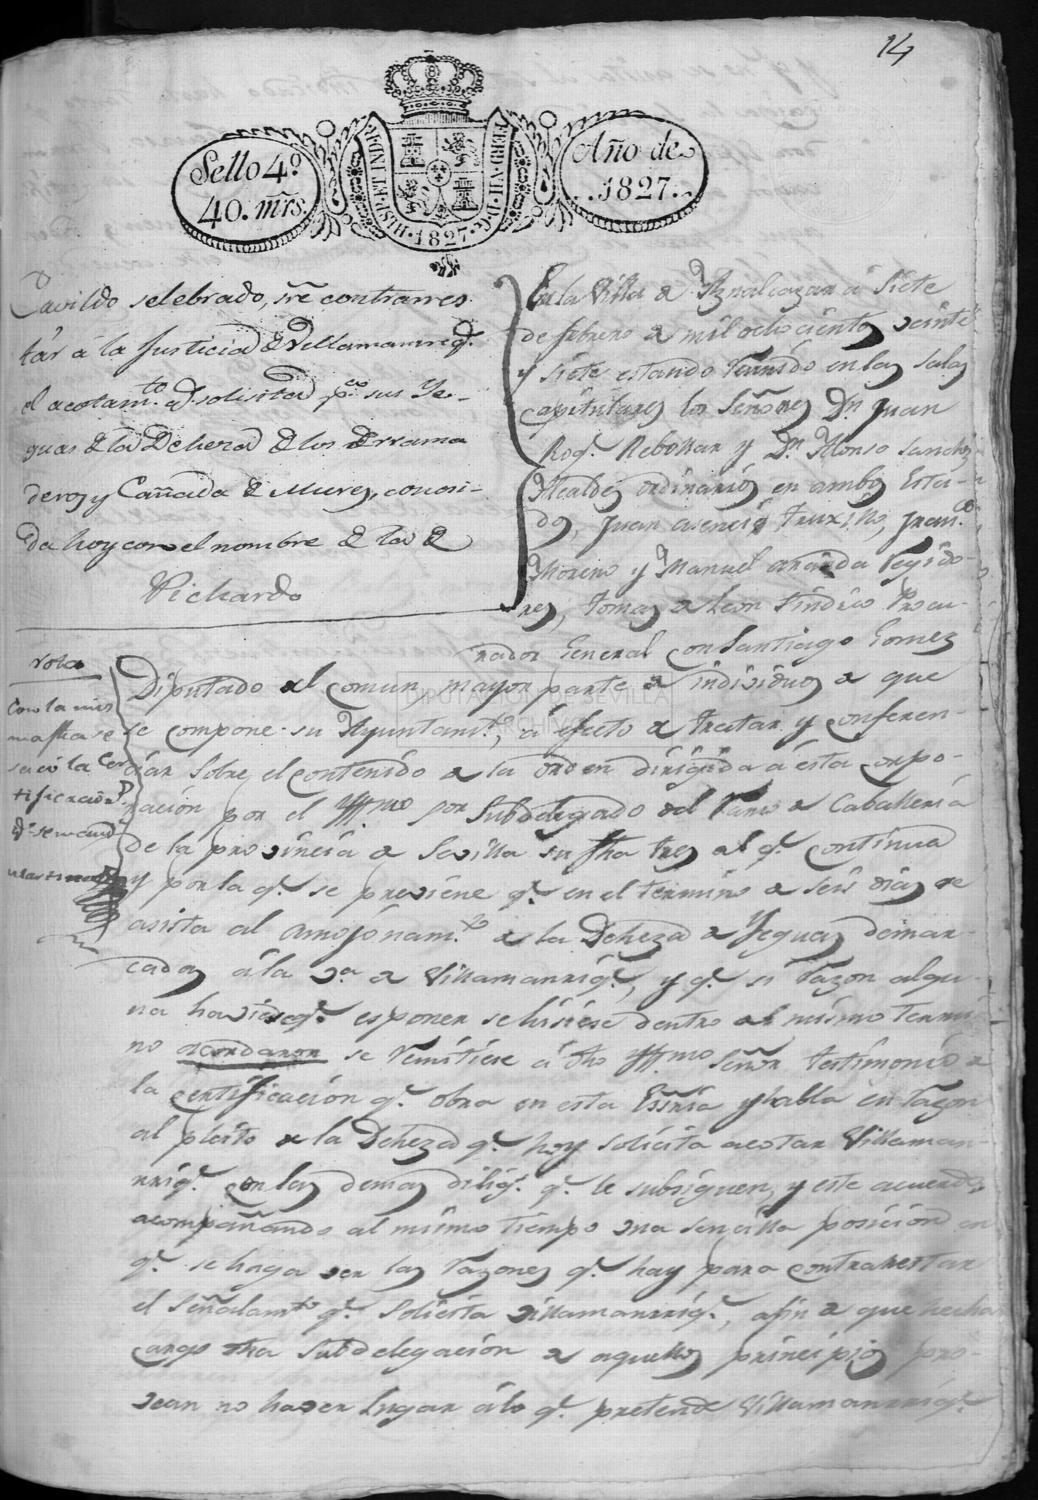 14
Sello 4º
40. mrs.
HISP. ET IND. R. FERD. VII. D. G. 1827
Año de
1827.
Cavildo selebrado, sre contrarres
tár á la Justicia de Villamanrrq.e
el acotamto q.e solisita pa sus Ye-
guas de la Deheza de los Derrama
deros y Cañada de Mures, conosi-
da hoy con el nombre de la de
Pichardo
En la Villa de Aznalcazar á Siete
de febrero de mil ochocientos veinte
y siete estando reunido en las salas
capitulares los Señores Dn. Juan
Rog.e Rebollar y Dn. Alonso Sanchez
Alcaldes ordinarios en ambos Esta-
dos, Juan asencio truxillo, Fran.co
Moreno y Manuel aranda regido-
res, tomas de Leon sindico Procu-
rador General con Santiago Gomez
Diputado del comun mayor parte de individuos de que
se compone su Ayuntam.to, á efecto de tratar y conferen-
ciar sobre el contenido de la orden dirigida á esta corpo-
ración por el Yllmo sor Subdelegado del Ramo de Caballeria
de la provincia de Sevilla su fha tres al q.e continua
y por la q.e se previene q.e en el termino de seis dias se
asista al amojonam.to de la Deheza de Yeguas demar-
cadas á la va de Villamanriq.e, y q.e si razon algu-
na haviese q.e esponer se hisiese dentro del mismo termi
no acordaron se remitiese á dho Yllmo Señor testimonio de
la certificación q.e obra en esta Essnia y habla en razon
al pleito de la Deheza q.e hoy solicita acotar Villaman-
rriq.e con las demas dilig.s q.e le subsiguen, y este acuerdo
acompañando al mismo tiempo una sencilla posicion en
q.e se haga ver las razones q.e hay para contrarrestar
el señalamto q.e solicita Villamanrriq.e, afin de que hecha
cargo dha subdelegación de aquellos principios pro-
vean no haver lugar á lo q.e pretende Villamanrriq.e
Nota
Con la mis
ma fha se
sacó la Cer
tificacion
q.e se manda
DIPUTACION DE SEVILLA
ARCHIVO